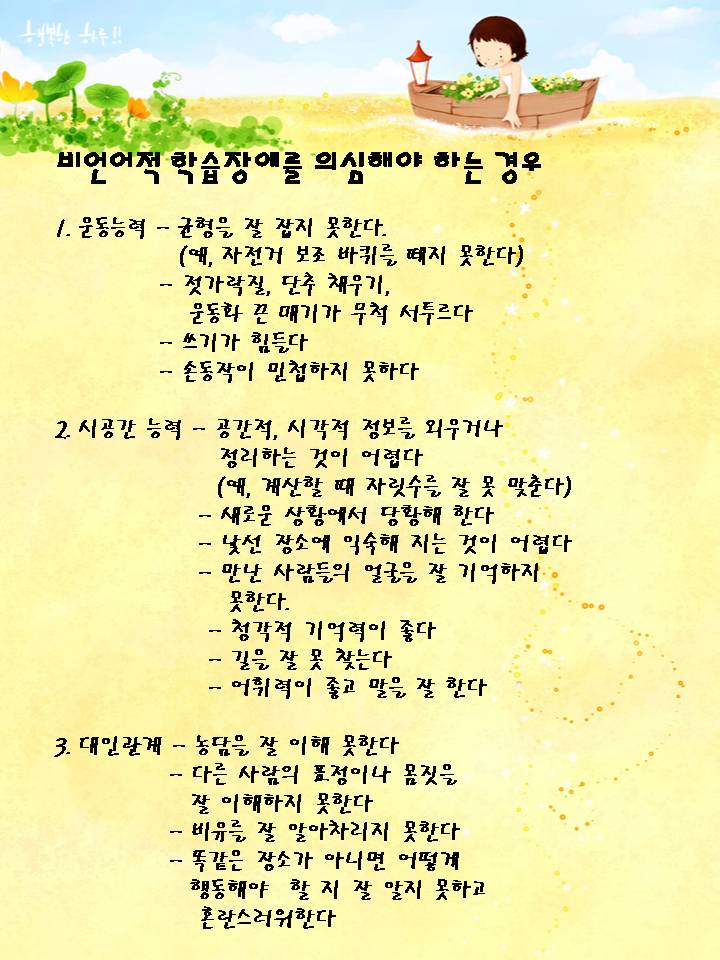 행복한 하루!!
비언어적 학습장애를 의심해야 하는 경우
1. 운동능력 - 균형을 잘 잡지 못한다.
(예, 자전거 보조 바퀴를 떼지 못한다)
- 젓가락질, 단추 채우기,
운동화 끈 매기가 무척 서투르다
- 쓰기가 힘들다
- 손동작이 민첩하지 못하다
2. 시공간 능력 - 공간적, 시각적 정보를 외우거나
정리하는 것이 어렵다
(예, 계산할 때 자릿수를 잘 못 맞춘다)
- 새로운 상황에서 당황해 한다
- 낯선 장소에 익숙해 지는 것이 어렵다
- 만난 사람들의 얼굴을 잘 기억하지
못한다.
- 청각적 기억력이 좋다
- 길을 잘 못 찾는다
- 어휘력이 좋고 말을 잘 한다
3. 대인관계 - 농담을 잘 이해 못한다
- 다른 사람의 표정이나 몸짓을
잘 이해하지 못한다
- 비유를 잘 알아차리지 못한다
- 똑같은 장소가 아니면 어떻게
행동해야 할 지 잘 알지 못하고
혼란스러워한다